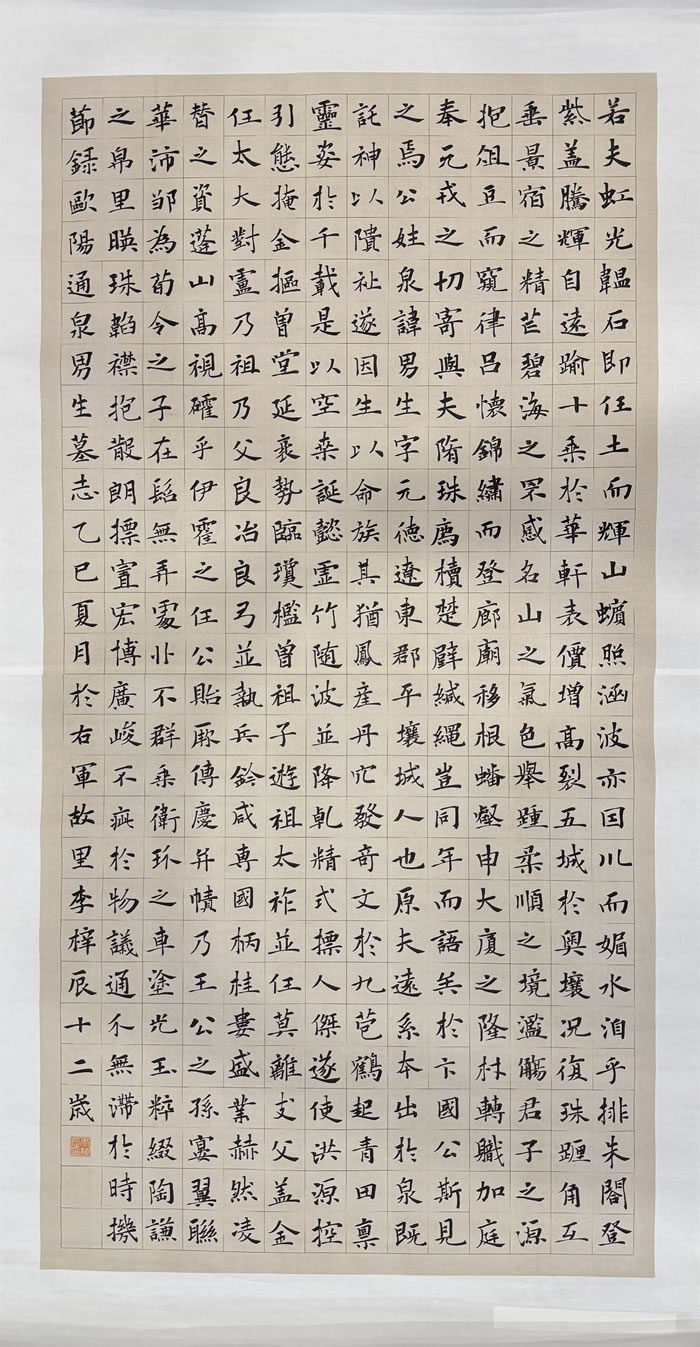 若夫虹光韞石即任土而輝山蠙照涵波亦囙川而媚水洎乎排朱閣登
紫盖騰輝自遠踰十乘於華軒表價增高裂五城於輿壤況復珠躔角互
垂景宿之精芒碧海之罘感名山之氣色舉踵柔順之境濫觴君子之源
抱俎豆而窺律呂懷錦繡而登廊廟移根蟠壑申大廈之隆材轉職加庭
奉元戎之切寄與夫隋珠廌櫝楚璧緘繩豈同年而語矣於卞國公斯見
之焉公姓泉諱男生字元德遼東郡平壤城人也原夫遠系本出於泉既
託神以隤祉遂因生以命族其猶鳳産丹穴發奇文於九苞鶴起青田禀
靈姿於千載是以空桑誕懿虛竹随波並降乹精式摽人傑遂使洪源控
引態掩金摳曾堂延袤勢臨瓊檻曾祖子遊祖太祚並任莫離支父盖金
任太大對盧乃祖乃父良冶良弓並執兵鈐咸専國柄桂婁盛業赫然凌
替之資蓬山高視確乎伊霍之任公貽厥傳慶弁幘乃王公之孫宴翼聯
華沛邹為荀令之子在髫無弄處丱不群乘衛玠之車塗光玉粹綴陶謙
之帛里暎珠韜襟抱散朗摽寘宏博廣峻不疵於物議通介無滯於時機
莭録歐陽通泉男生墓志乙巳夏月於右軍故里李梓辰十二歳